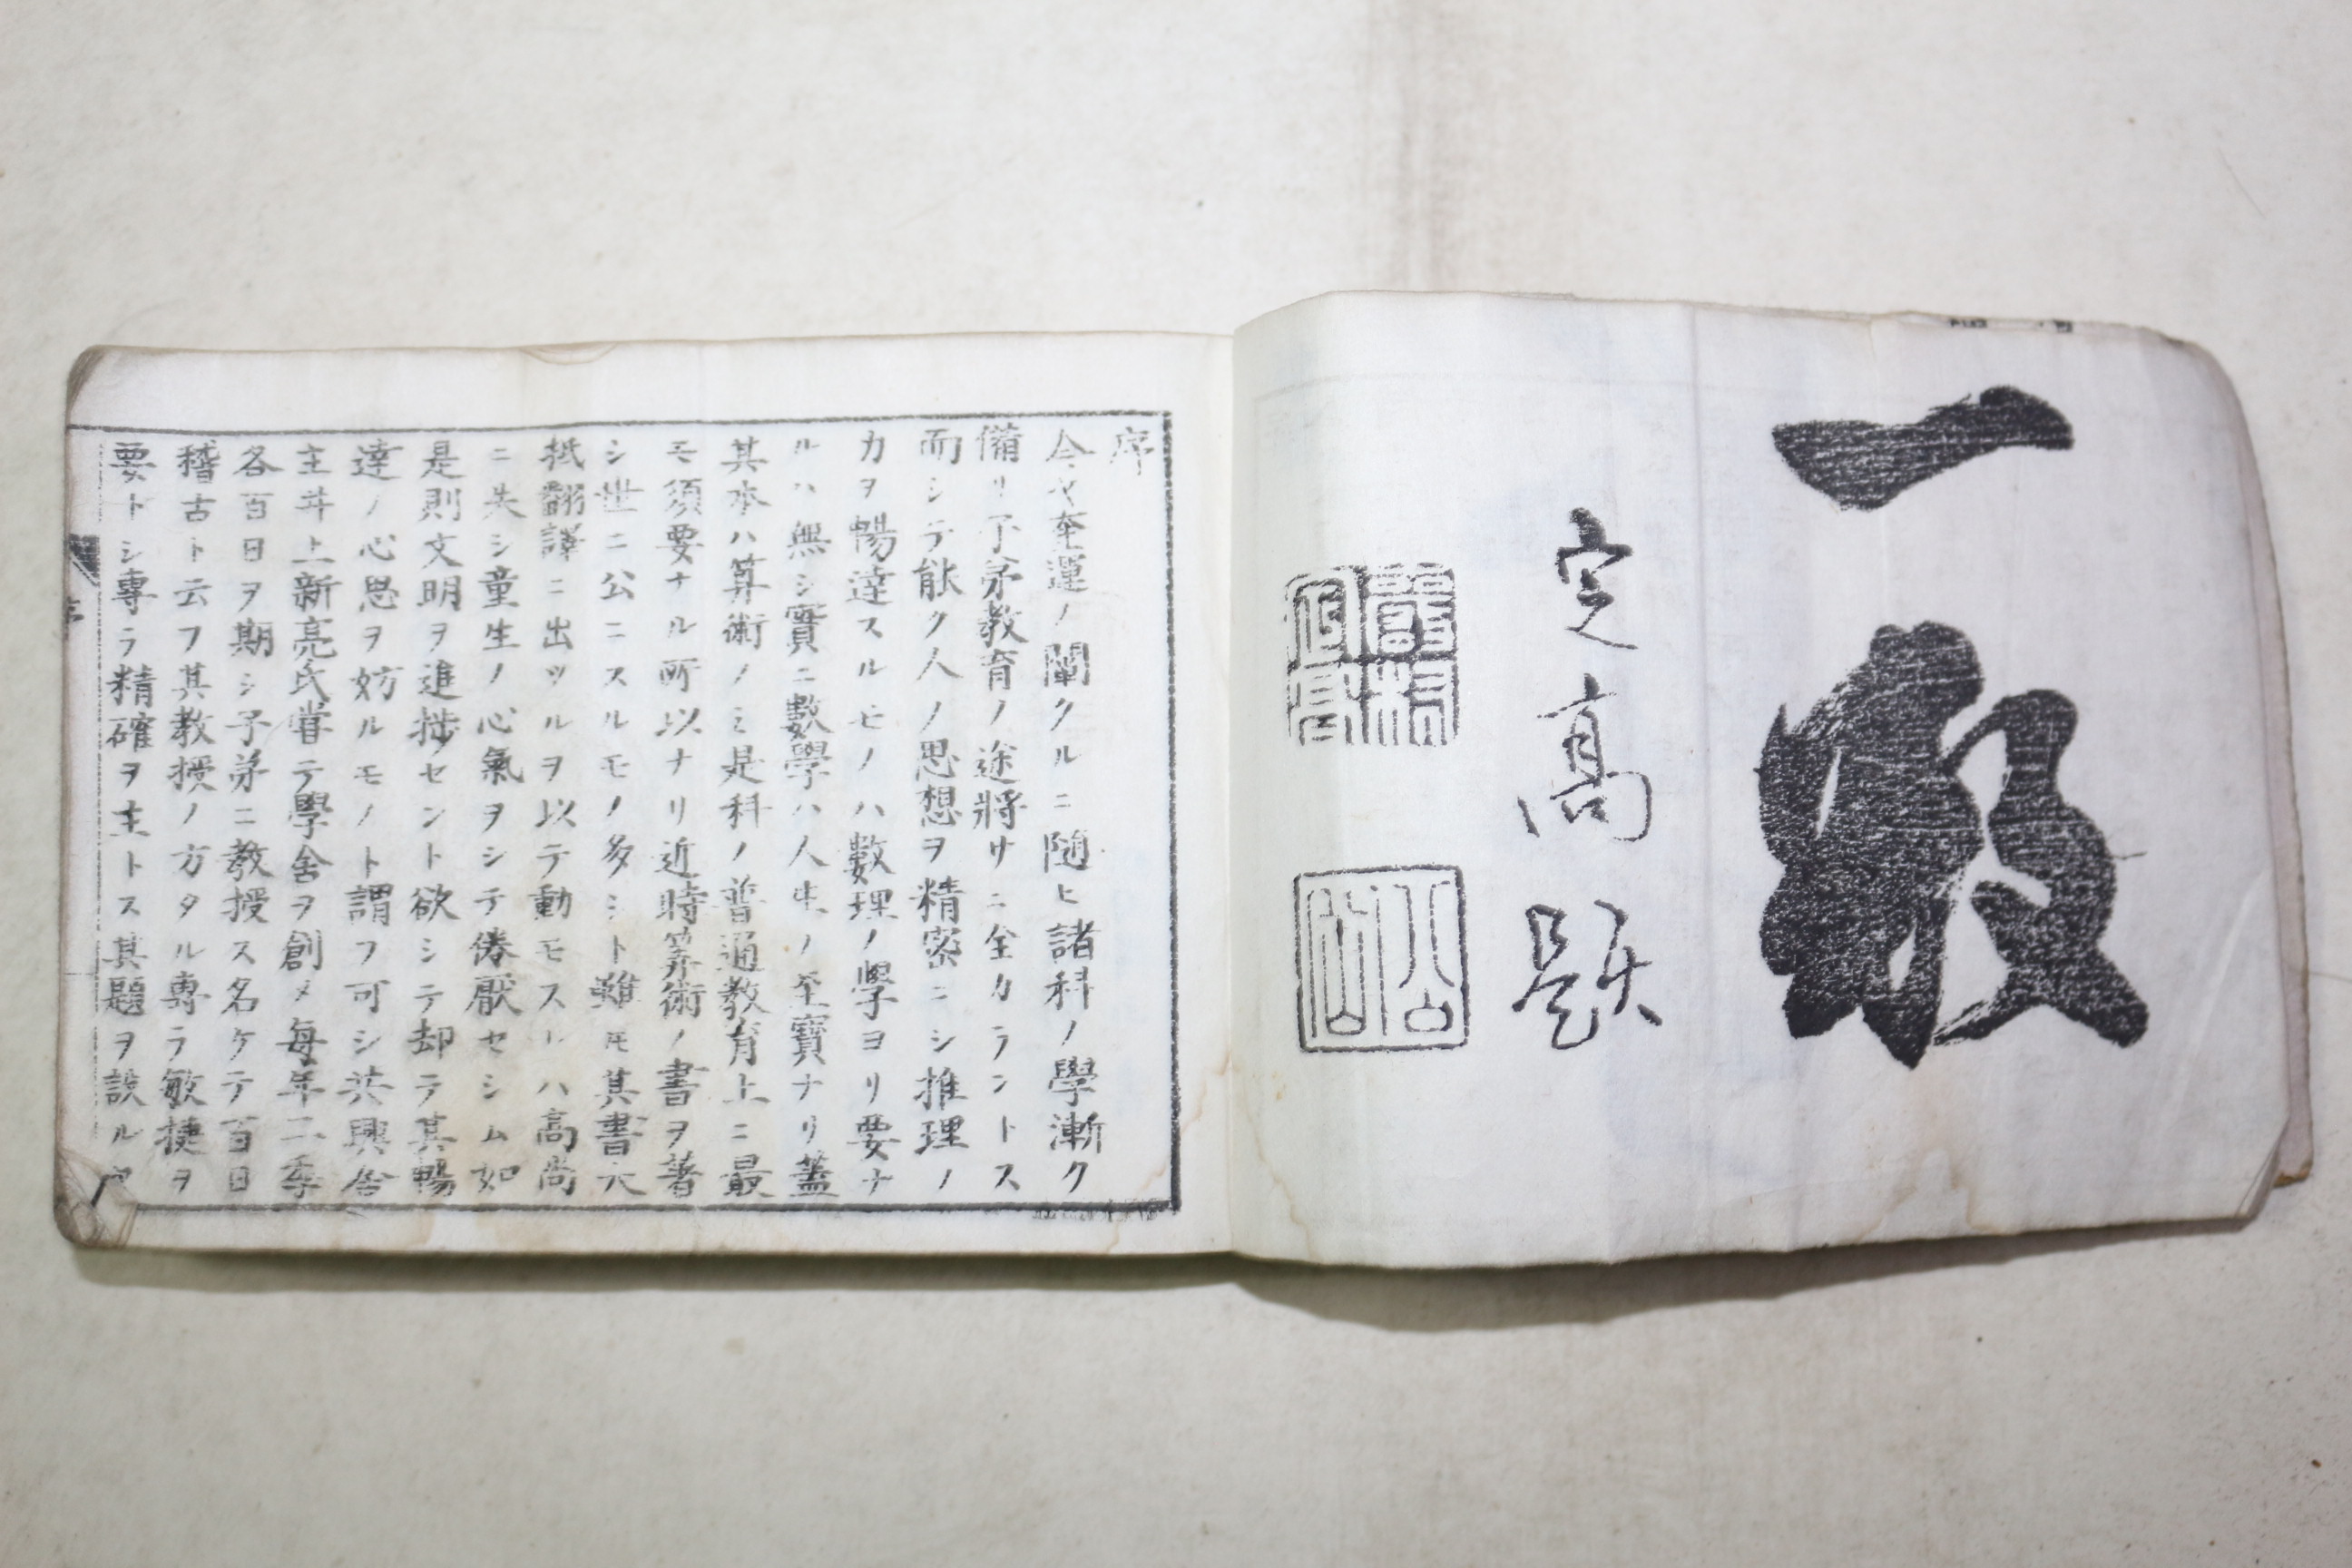 一
定高題
序
今ヤ奎運ノ闡クルニ随ヒ諸科ノ學漸ク
備リ子弟教育ノ途將サニ全カラントス
而シテ能ク人ノ思想ヲ精密ニシ推理ノ
力ヲ暢達スルモノハ數理ノ學ヨリ要ナ
ルハ無シ實ニ數學ハ人生ノ至寶ナリ蓋
其本ハ算術ノミ是科ノ普通教育上ニ最
モ須要ナル所以ナリ近時算術ノ書ヲ著
シ世ニ公ニスルモノ多シト雖モ其書大
抵翻譯ニ出ツルヲ以テ動モスレハ高尚
ニ失シ童生ノ心氣ヲシテ倦厭セシム如
是則文明ヲ進捗セント欲シテ却テ其暢
達ノ心思ヲ妨ルモノト謂フ可シ共興舎
主井上新亮氏甞テ學舎ヲ創メ毎年二季
各百日ヲ期シ子弟ニ教授ス名ケテ百日
稽古ト云フ其教授ノ方タル專ラ敏捷ヲ
要トシ專ラ精確ヲ主トス其題ヲ設ル